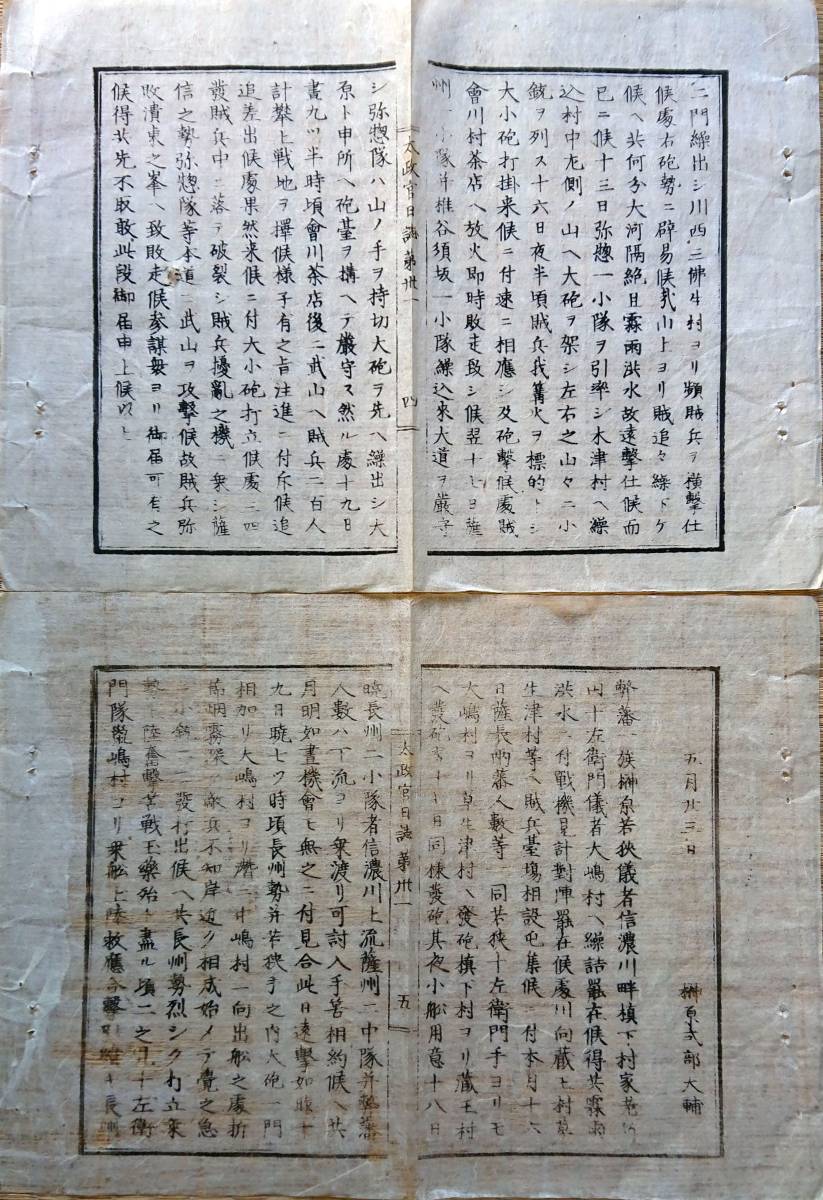 二門繰出シ川西三佛生村ヨリ頻賊兵ヲ横撃仕
候處右砲勢ニ辟易候哉山上ヨリ賊追々繰下ケ
候ヘ共何分大河隔絶且霧雨洪水故遠撃仕候而
已ニ候十三日弥惣一小隊ヲ引率シ木津村ヘ繰
込村中左側ノ山ヘ大砲ヲ架シ左右之山々ニ小
銃ヲ列ス十六日夜半頃賊兵我篝火ヲ標的トシ
大小砲打掛来候ニ付速ニ相應シ及砲撃候處賊
會川村茶店ヘ放火即時敗走致シ候翌十七日薩
州一小隊并椎谷須坂一小隊繰込来大道ヲ厳守
シ弥惣隊ハ山ノ手ヲ持切大砲ヲ先ヘ繰出シ大
原ト申所ヘ砲基ヲ搆ヘテ厳守ス然ル處十九日
晝九ツ半時頃會川茶店後ニ武山ヘ賊兵二百人
計攀上戦地ヲ擇候様子有之旨注進ニ付斥候追
追差出候處果然来候ニ付大小砲打立候處三四
發賊兵中ニ落テ破裂シ賊兵擾亂之機ニ乗シ薩
信之勢弥惣隊等本道ニ武山ヲ攻撃候故賊兵弥
敗潰東之峯ヘ致敗走候参謀衆ヨリ御届可有之
候得共先不取敢此段御届申上候以上
太政官日誌第卅一
四
五月廿三日
榊原式部大輔
弊藩一族榊原若狭儀者信濃川畔槙下村
十左衛門儀者大嶋村ヘ繰詰罷在候得共霖雨
洪水ニ付戦機見計對陣罷在候處川向蔵王村草
生津村等ヘ賊兵臺場相設屯集候ニ付本月十六
日薩長両藩人數等一同若狭十左衛門手ヨリモ
大嶋村ヨリ草生津村ヘ發砲槙下村ヨリ蔵王村
ヘ發砲 十七日同様發砲其夜小船用意十八日
暁長州二小隊者信濃川上流薩州二中隊并弊藩
人數ハ下流ヨリ乗渡リ可討入手筈相約候ヘ共
月明如晝機會モ無之ニ付見合此日遠撃如 十
九日暁七ツ時頃長州勢并若狭手之内大砲一門
相加リ大嶋村ヨリ 中嶋村一向出船之處折
節烟霧深ク敵兵不知岸近ク相成始メテ覺之急
ニ小銃一二發打出候ヘ共長州勢烈シク打立乗
勢上陸奮撃苦戦玉藥殆ト盡ル頃ニ之 十左衛
門隊 嶋村ヨリ乗船上陸救應合撃 長州
太政官日誌第卅一
五